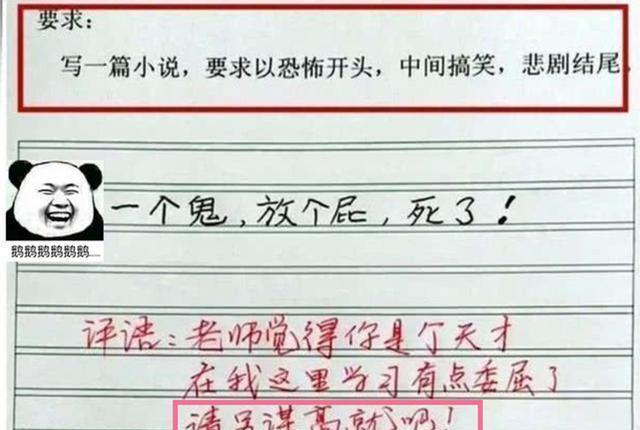 要求:
写一篇小说，要求以恐怖开头，中间搞笑，悲剧结尾。
一个鬼，放个屁，死了！
鹅鹅鹅鹅鹅鹅......
评语：老师觉得你是个天才
在我这里学习有点委屈了
请另谋高就吧！